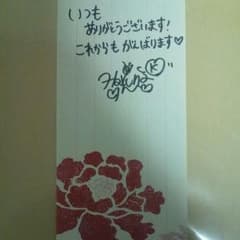 いつも
ありがとうございます!
これからも がんばります♡